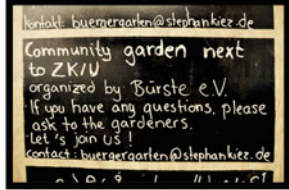 kontakt: buergergarten@stephankiez.de
Community garden next
to ZK/U
organized by Bürste e.V.
If you have any questions, please
ask to the gardeners.
Let's join us !
contact : buergergarten@stephankiez.de